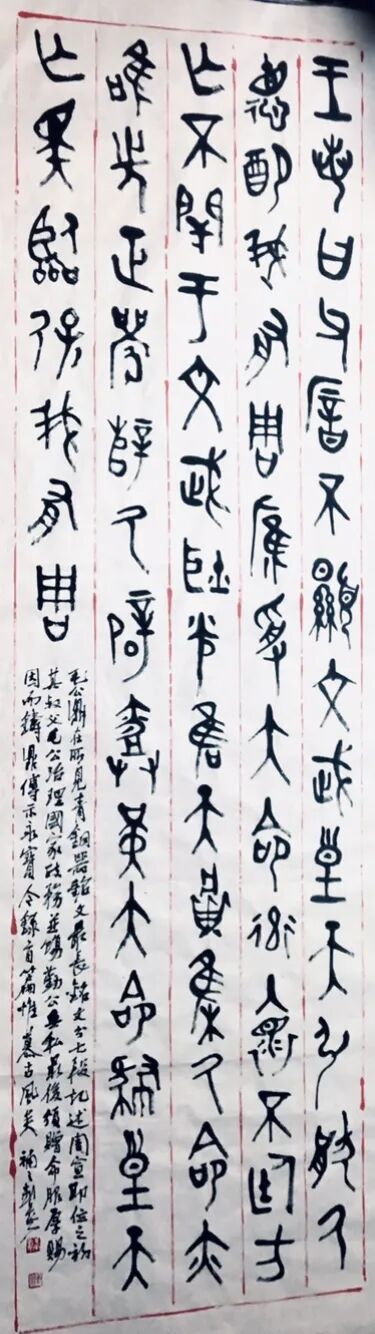 王若曰父厝不顯文武皇天弘猒氒
德配我有周雁受大命率懷不廷方
亡不閈于文武耿光唯天將集氒命亦
唯先正襄辥氒辟勞堇大命肆皇天
亡斁臨保我有周
毛公鼎在所見青銅器銘文最長銘文分七段記述周宣即位之初
其叔父毛公治理國家政務並飭勤公無私最後頒贈命服厚賜
因而鑄鼎傳示永寶今錄首篇惟慕古風矣